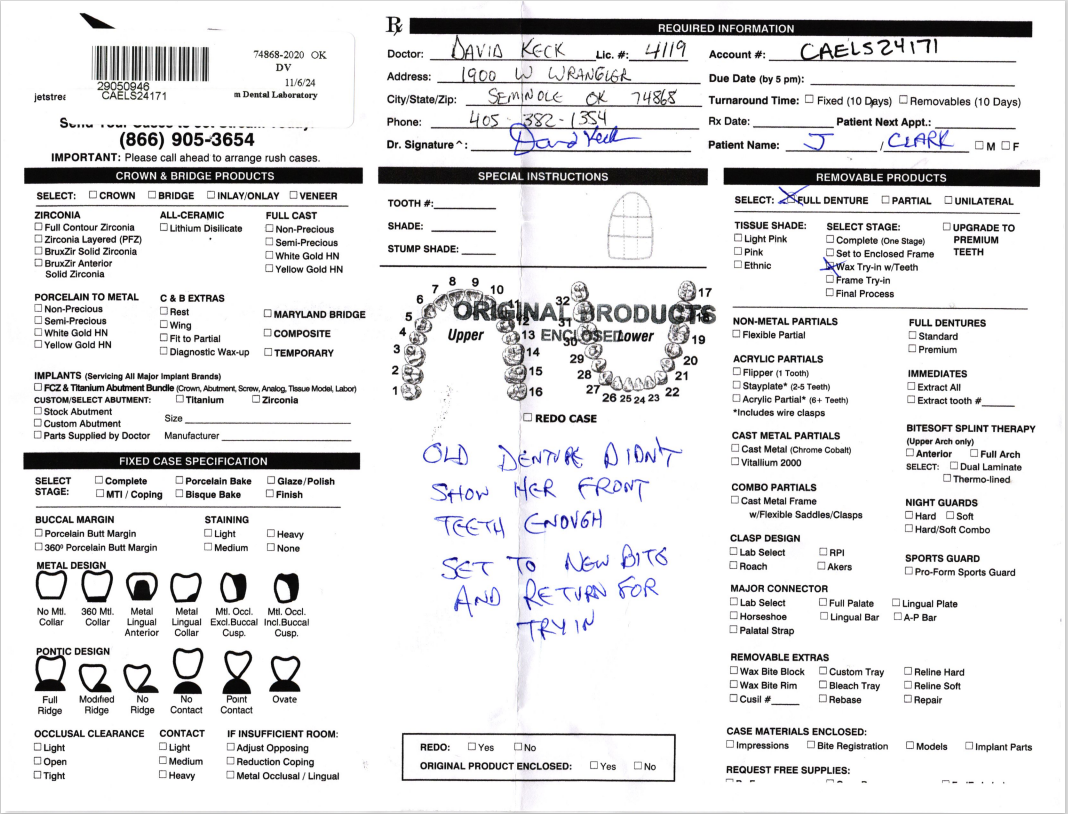 74868-2020 OK
DV
11/6/24
29050946
jetstrea
CAELS24171
m Dental Laboratory
(866) 905-3654
IMPORTANT: Please call ahead to arrange rush cases.
Rx
REQUIRED INFORMATION
Doctor: DAVID KECK Lic. #: 4119
Account #: CAELS24171
Address: 1900 W WRANGLER
Due Date (by 5 pm):
City/State/Zip: SEMINOLE OK 74868
Turnaround Time: Fixed (10 Days) Removables (10 Days)
Phone: 405-382-1354
Rx Date: Patient Next Appt.:
Dr. Signature^: David Keck
Patient Name: J / CLARK M F
CROWN & BRIDGE PRODUCTS
SELECT: CROWN BRIDGE INLAY/ONLAY VENEER
ZIRCONIA
Full Contour Zirconia
Zirconia Layered (PFZ)
BruxZir Solid Zirconia
BruxZir Anterior
Solid Zirconia
ALL-CERAMIC
Lithium Disilicate
FULL CAST
Non-Precious
Semi-Precious
White Gold HN
Yellow Gold HN
PORCELAIN TO METAL
Non-Precious
Semi-Precious
White Gold HN
Yellow Gold HN
C & B EXTRAS
Rest
Wing
Fit to Partial
Diagnostic Wax-up
MARYLAND BRIDGE
COMPOSITE
TEMPORARY
IMPLANTS (Servicing All Major Implant Brands)
FCZ & Titanium Abutment Bundle (Crown, Abutment, Screw, Analog, Tissue Model, Labor)
CUSTOM/SELECT ABUTMENT: Titanium Zirconia
Stock Abutment
Custom Abutment
Parts Supplied by Doctor
Size
Manufacturer
FIXED CASE SPECIFICATION
SELECT STAGE:
Complete Porcelain Bake Glaze/Polish
MTI / Coping Bisque Bake Finish
BUCCAL MARGIN
Porcelain Butt Margin
360º Porcelain Butt Margin
STAINING
Light Heavy
Medium None
METAL DESIGN
No Mtl. Collar
360 Mtl. Collar
Metal Lingual Anterior
Metal Lingual Collar
Mtl. Occl. Excl.Buccal Cusp.
Mtl. Occl. Incl.Buccal Cusp.
PONTIC DESIGN
Full Ridge
Modified Ridge
No Ridge
No Contact
Point Contact
Ovate
OCCLUSAL CLEARANCE
Light
Open
Tight
CONTACT
Light
Medium
Heavy
IF INSUFFICIENT ROOM:
Adjust Opposing
Reduction Coping
Metal Occlusal / Lingual
SPECIAL INSTRUCTIONS
TOOTH #:
SHADE:
STUMP SHADE:
1 2 3 4 5 6 7 8 9 10 11 12 13 14 15 16
Upper
17 18 19 20 21 22 23 24 25 26 27 28 29 30 31 32
Lower
ORIGINAL PRODUCTS
ENCLOSED
REDO CASE
OLD DENTURE DIDN'T
SHOW HER FRONT
TEETH ENOUGH
SET TO NEW BITE
AND RETURN FOR
TRY IN
REDO: Yes No
ORIGINAL PRODUCT ENCLOSED: Yes No
REMOVABLE PRODUCTS
SELECT: FULL DENTURE PARTIAL UNILATERAL
TISSUE SHADE:
Light Pink
Pink
Ethnic
SELECT STAGE:
Complete (One Stage)
Set to Enclosed Frame
Wax Try-in w/Teeth
Frame Try-in
Final Process
UPGRADE TO
PREMIUM
TEETH
NON-METAL PARTIALS
Flexible Partial
ACRYLIC PARTIALS
Flipper (1 Tooth)
Stayplate* (2-5 Teeth)
Acrylic Partial* (6+ Teeth)
*Includes wire clasps
CAST METAL PARTIALS
Cast Metal (Chrome Cobalt)
Vitallium 2000
COMBO PARTIALS
Cast Metal Frame
w/Flexible Saddles/Clasps
CLASP DESIGN
Lab Select RPI
Roach Akers
FULL DENTURES
Standard
Premium
IMMEDIATES
Extract All
Extract tooth #
BITESOFT SPLINT THERAPY
(Upper Arch only)
Anterior Full Arch
SELECT: Dual Laminate
Thermo-lined
NIGHT GUARDS
Hard Soft
Hard/Soft Combo
SPORTS GUARD
Pro-Form Sports Guard
MAJOR CONNECTOR
Lab Select Full Palate Lingual Plate
Horseshoe Lingual Bar A-P Bar
Palatal Strap
REMOVABLE EXTRAS
Wax Bite Block Custom Tray Reline Hard
Wax Bite Rim Bleach Tray Reline Soft
Cusil # Rebase Repair
CASE MATERIALS ENCLOSED:
Impressions Bite Registration Models Implant Parts
REQUEST FREE SUPPLIES: